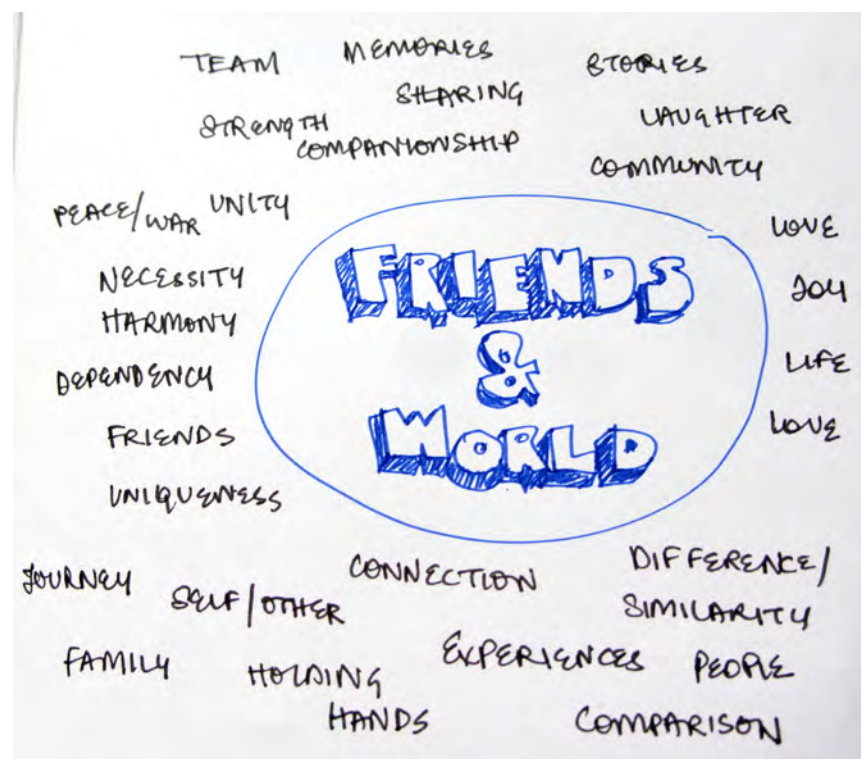 TEAM
MEMORIES
STORIES
SHARING
STRENGTH
LAUGHTER
COMPANIONSHIP
COMMUNITY
PEACE/WAR
UNITY
LOVE
NECESSITY
JOY
HARMONY
LIFE
DEPENDENCY
LOVE
FRIENDS
UNIQUENESS
FRIENDS
&
WORLD
JOURNEY
SELF/OTHER
CONNECTION
DIFFERENCE/
SIMILARITY
FAMILY
HOLDING
HANDS
EXPERIENCES
PEOPLE
COMPARISON